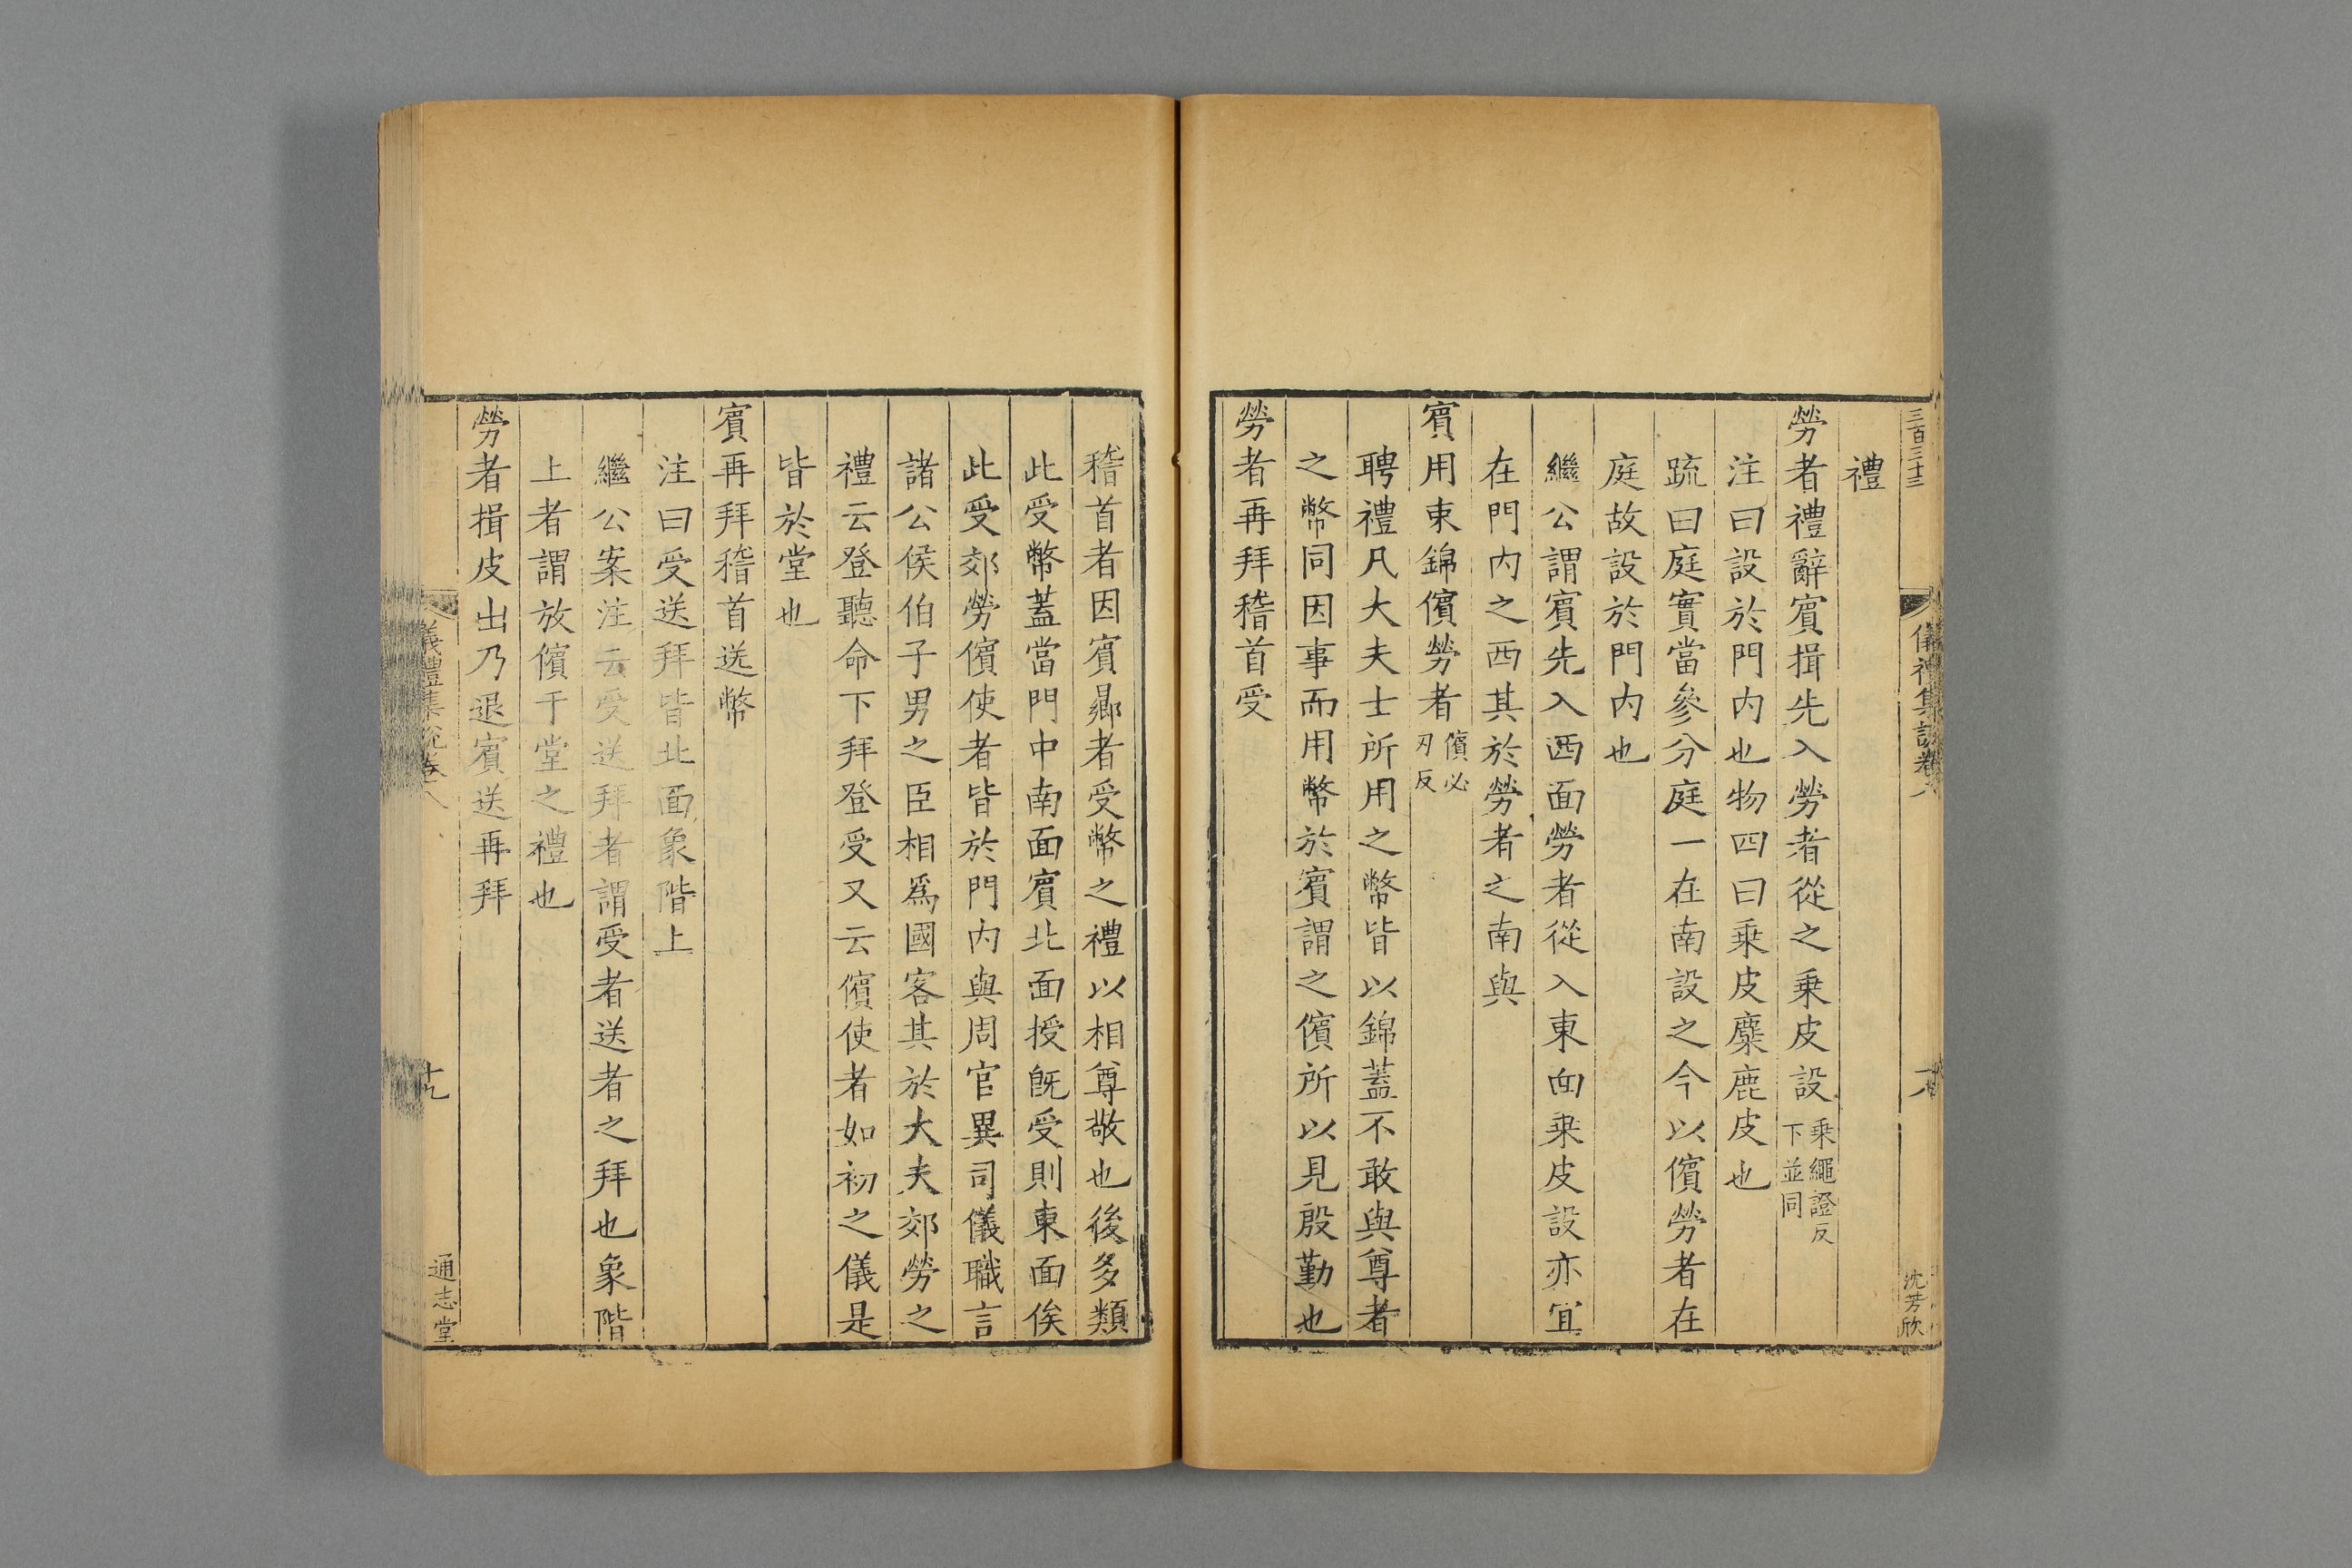 三百三十三
儀禮集說卷八
沈芳欣
禮
勞者禮辭賓揖先入勞者從之乗皮設乗繩證反下並同
注曰設於門内也物四曰乗皮麋鹿皮也
疏曰庭實當參分庭一在南設之今以儐勞者在
庭故設於門内也
繼公謂賓先入西面勞者從入東面乗皮設亦宜
在門内之西其於勞者之南與
賓用束錦儐勞者儐必刃反
聘禮凡大夫士所用之幣皆以錦蓋不敢與尊者
之幣同因事而用幣於賓謂之儐所以見殷勤也
勞者再拜稽首受
稽首者因賓鄉者受幣之禮以相尊敬也後多類
此受幣蓋當門中南面賓北面授旣受則東面俟
此受郊勞儐使者皆於門内與周官異司儀職言
諸公侯伯子男之臣相爲國客其於大夫郊勞之
禮云登聽命下拜登受又云儐使者如初之儀是
皆於堂也
賓再拜稽首送幣
注曰受送拜皆北面象階上
繼公案注云受送拜者謂受者送者之拜也象階
上者謂放儐于堂之禮也
勞者揖皮出乃退賓送再拜
儀禮集說卷八
十九
通志堂